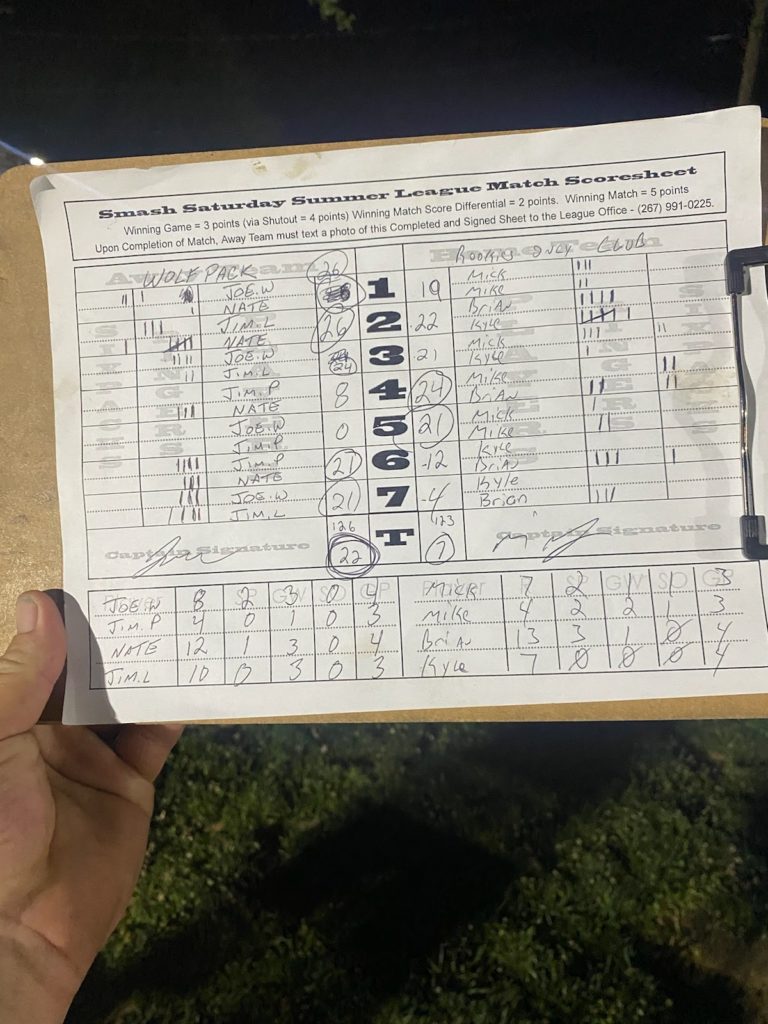 Smash Saturday Summer League Match Scoresheet
Winning Game = 3 points (via Shutout = 4 points) Winning Match Score Differential = 2 points. Winning Match = 5 points
Upon Completion of Match, Away Team must text a photo of this Completed and Signed Sheet to the League Office - (267) 991-0225.
WOLFPACK 26 ROOKIES ONLY CLUB
JOE.W 1 19 MICK
NATE MIKE
JIM.L 26 2 22 BRIAN
NATE KYLE
JOE.W 24 3 21 MICK
JIM.L KYLE
JIM.P 8 4 24 MIKE
NATE BRIAN
JOE.W 0 5 21 MICK
JIM.P MIKE
JIM.P 21 6 -12 KYLE
NATE BRIAN
JOE.W 21 7 -4 KYLE
JIM.L Brian
126 T 123
Captain Signature 22 7 Captain Signature
JOE.W 8 2 3 0 4 MICK 7 2 1 1 3
JIM.P 4 0 1 0 3 MIKE 4 2 2 1 3
NATE 12 1 3 0 4 BRIAN 13 3 1 0 4
JIM.L 10 0 3 0 3 KYLE 7 0 0 0 4